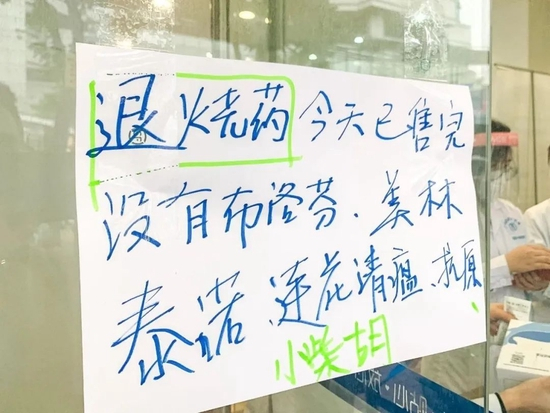 退烧药今天已售完
没有布洛芬、美林
泰诺、莲花清瘟、抗原、
小柴胡